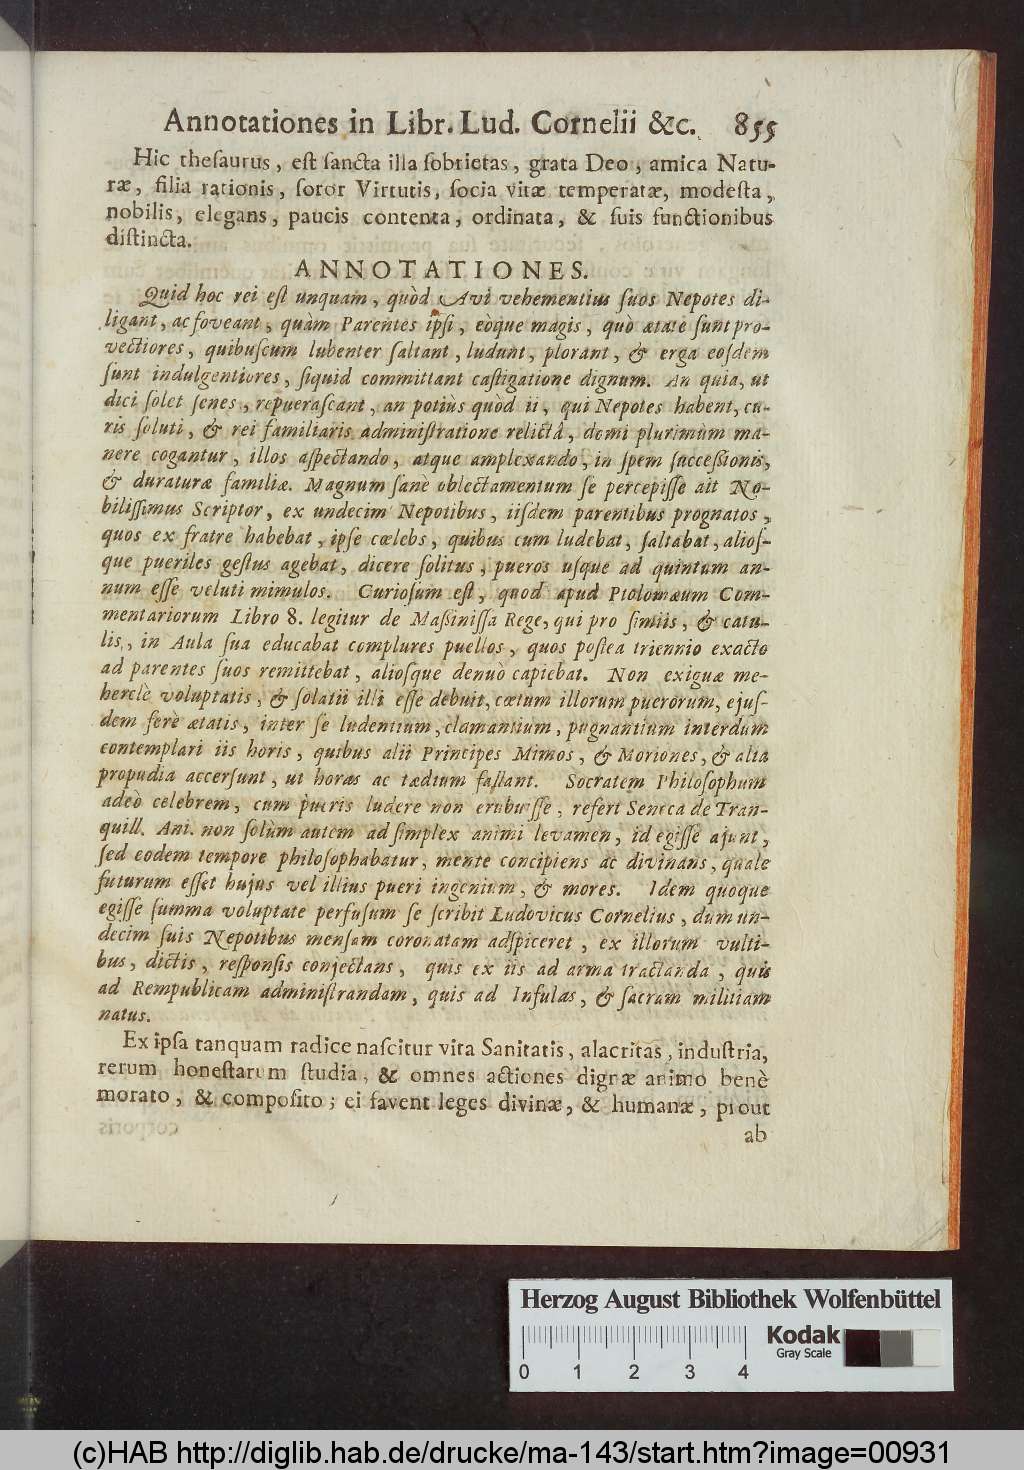 Annotationes in Libr. Lud. Cornelii &c. 855
Hic thesaurus, est sancta illa sobrietas, grata Deo, amica Natu-
ræ, filia rationis, soror Virtutis, socia vitæ temperatæ, modesta,
nobilis, elegans, paucis contenta, ordinata, & suis functionibus
distincta.
ANNOTATIONES.
Quid hoc rei est unquam, quòd Avi vehementius suos Nepotes di-
ligant, ac foveant, quàm Parentes ipsi, eòque magis, quò ætate sunt pro-
vectiores, quibuscum lubenter saltant, ludunt, plorant, & erga eosdem
sunt indulgentiores, siquid committant castigatione dignum. An quia, ut
dici solet senes, repuerascant, an potiùs quòd ii, qui Nepotes habent, cu-
ris soluti, & rei familiaris administratione relictâ, domi plurimùm ma-
nere cogantur, illos aspectando, atque amplexando, in spem successionis,
& duraturæ familiæ. Magnum sanè oblectamentum se percepisse ait No-
bilissimus Scriptor, ex undecim Nepotibus, iisdem parentibus prognatos,
quos ex fratre habebat, ipse cœlebs, quibus cum ludebat, saltabat, alios-
que pueriles gestus agebat, dicere solitus, pueros usque ad quintum an-
num esse veluti mimulos. Curiosum est, quod apud Ptolomæum Com-
mentariorum Libro 8. legitur de Massinissa Rege, qui pro simiis, & catu-
lis, in Aula sua educabat complures puellos, quos postea triennio exacto
ad parentes suos remittebat, aliosque denuò capiebat. Non exiguæ me-
herclè voluptatis, & solatii illi esse debuit, cœtum illorum puerorum, ejus-
dem ferè ætatis, inter se ludentium, clamantium, pugnantium interdum
contemplari iis horis, quibus alii Principes Mimos, & Moriones, & alia
propudia accersunt, ut horas ac tædium fallant. Socratem Philosophum
adeò celebrem, cum pueris ludere non erubuisse, refert Seneca de Tran-
quill. Ani. non solùm autem ad simplex animi levamen, id egisse ajunt,
sed eodem tempore philosophabatur, mente concipiens ac divinans, quale
futurum esset hujus vel illius pueri ingenium, & mores. Idem quoque
egisse summa voluptate perfusum se scribit Ludovicus Cornelius, dum un-
decim suis Nepotibus mensam coronatam adspiceret, ex illorum vulti-
bus, dictis, responsis conjectans, quis ex iis ad arma tractanda, quis
ad Rempublicam administrandam, quis ad Infulas, & sacram militiam
natus.
Ex ipsa tanquam radice nascitur vita Sanitatis, alacritas, industria,
rerum honestarum studia, & omnes actiones dignæ animo benè
morato, & composito; ei favent leges divinæ, & humanæ, prout
ab
Herzog August Bibliothek Wolfenbüttel
Kodak
Gray Scale
0 1 2 3 4
(c)HAB http://diglib.hab.de/drucke/ma-143/start.htm?image=00931